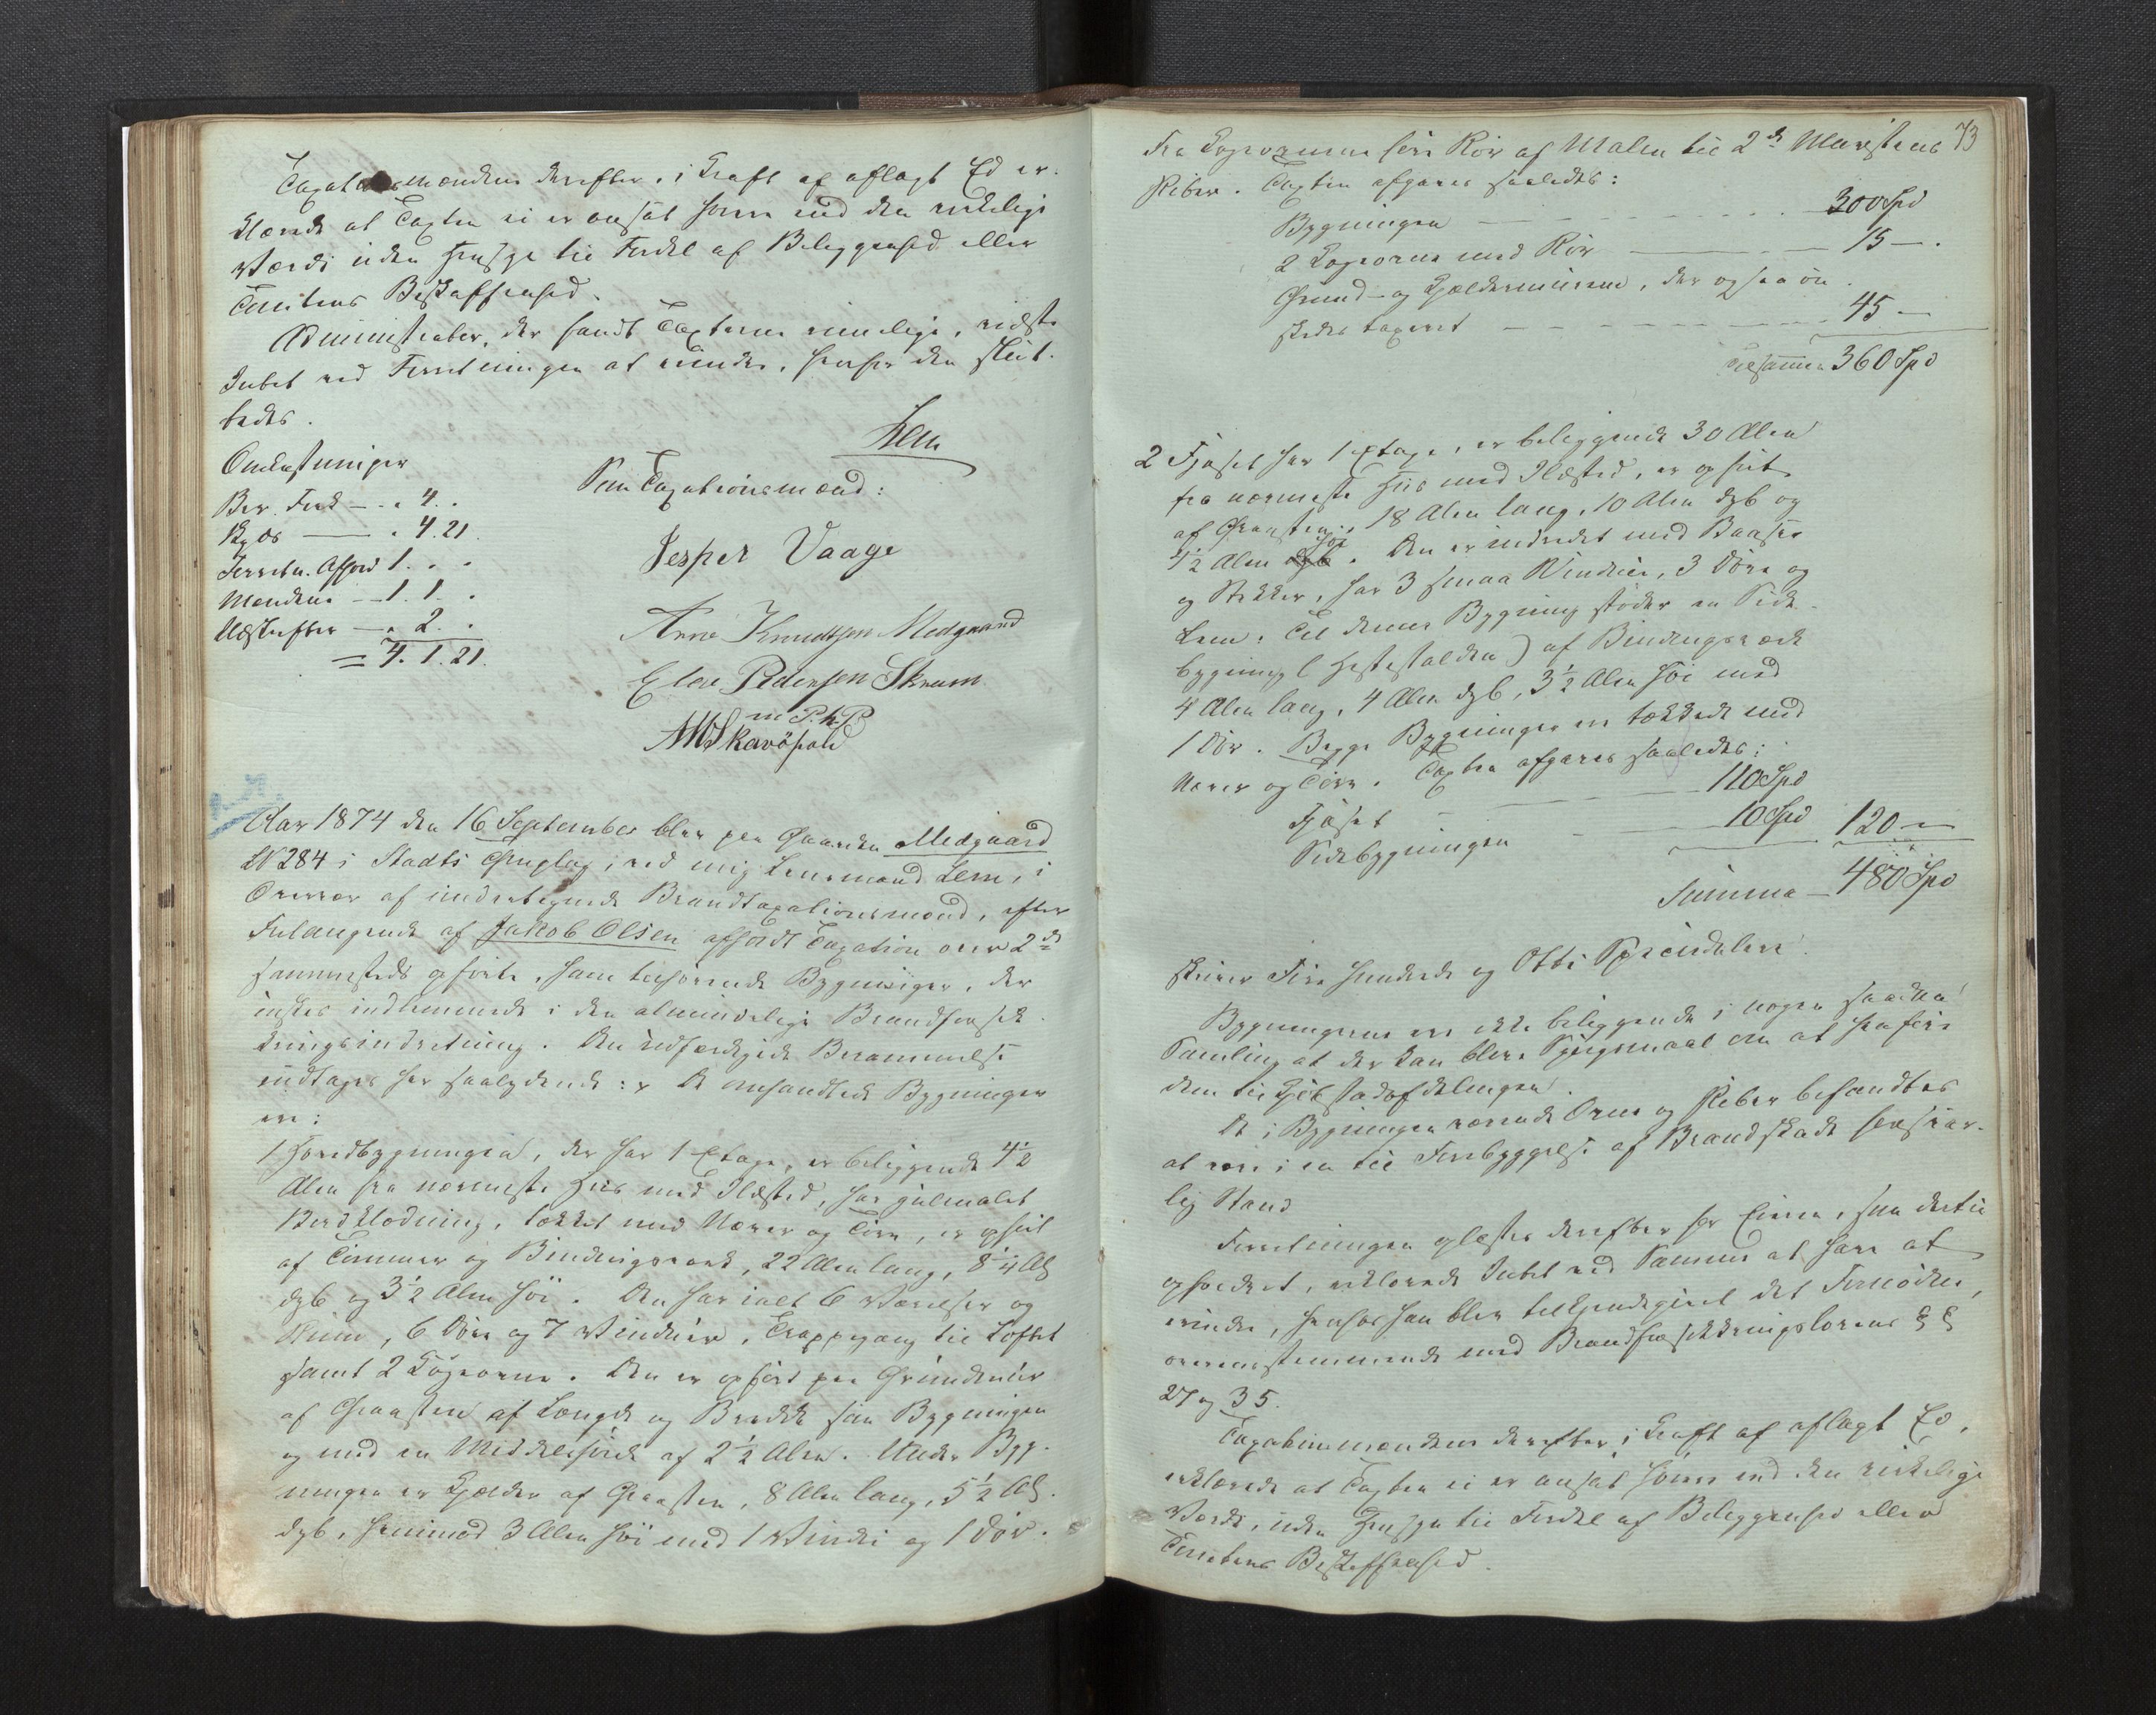 Taxationsmændene derefter, i Kraft af aflagt Ed er-
klærede at Taxten ei er ansat høiere end den virkelige
Værdi uden Hensyn til Fordel af Beliggenhed eller
Tomtens Beskaffenhed.
Administrator, der fandt Taxterne rimelige, vidste
Intet ved Forretningen at erindre, hvorfor den slut-
tedes.
Lem
Omkostninger
Ber. Ford — " 4 "
Skyds — " 4. 21.
Forretn. Afhold 1. " "
Mændene — 1. 1. "
Udskrifter — " 2. "
= 4. 1. 21.
Som Taxationsmænd:
Jesper Vaage
Arne Knudtsen Medgaard
Elias Pedersen Skraam
m P. h. P.
Aar 1874 den 16 September blev paa Gaarden Medgaard
LN 284 i Stadts Thinglag, ved mig Lensmand Lem, i
Overvær af undertegnede Brandtaxationsmænd, efter
Forlangende af Jakob Olsen afholdt Taxation over 2de
sammesteds opførte, ham tilhørende Bygninger, der
ønskes indlemmede i den almindelige Brandforsik-
kringsindretning. Den udfærdigede Berammelse
indtages her saalydende: De omhandlede Bygninger
ere:
1 Hovedbygningen, der har 1 Etage, er beliggende 4½
Alen fra nærmeste Huus med Ildsted, har gulmalet
Bordklædning, tækket med Næver og Törv, er opført
af Tømmer og Bindingsværk, 22 Alen lang, 8¼ Al
dyb og 3½ Alen høi. Den har ialt 6 Værelser og
Rum, 6 Døre og 7 Vinduer, Trappegang til Loftet
samt 2 Kogeovne. Den er opført paa Grundmur
af Graasten af Længde og Bredde som Bygningen
og med en Middelhøide af 2½ Alen. Under Byg-
ningen er Kjælder af Graasten, 8 Alen lang, 5½ Al.
dyb, henimod 3 Alen høi med 1 Vindu og 1 Dør.
73
Fra Kogeovnene føre Rør af Malm til 2de Murstens
Piber. Taxten afgaves saaledes:
Bygningen — 300 Spd
2 Kogeovne med Rør — 15 — .
Grund- og Kjældermurene, der ogsaa ön-
skedes taxeret — 45 —
Tilsammen 360 Spd
2 Fjøset har 1 Etage, er beliggende 30 Alen
fra nærmeste Huus med Ildsted, er opført
af Graasten, 18 Alen lang, 10 Alen dyb og
4½ Alen dyb høi. Den er indredet med Baaser
og Stokker, har 3 smaa Vinduer, 3 Døre og
Lem. Til denne Bygning støder en Side-
bygning (Hestestalden) af Bindingsværk
4 Alen lang, 4 Alen dyb, 3½ Alen høi med
1 Dör. Begge Bygninger ere tækkede med
Næver og Törv. Taxten afgaves saaledes:
Fjøset — 110 Spd
Sidebygningen — 10 Spd 120 —
Summa — 480 Spd
skriver Fire hundrede og Otti Speciedalere.
Bygningerne ere ikke beliggende i nogen saadan
Samling at der kan blive Spørgsmaal om at henføre
dem til Kjøbstadafdelingen.
De i Bygningen værende Ovne og Piber befandtes
at være i en til Forebyggelse af Brandskade forsvar-
lig Stand
Forretningen oplæstes derefter for Eieren, som dertil
opfordret, erklærede Intet ved Samme at have at
erindre, hvorfor han blev tilkjendegivet det Fornødne,
overensstemmende med Brandforsikkringslovens §§
27 og 35.
Taxationsmændene derefter, i Kraft af aflagt Ed,
erklærede at Taxten ei er ansat høiere end den virkelige
Værdi, uden Hensyn til Fordel af Beliggenhed eller
Tomtens Beskaffenhed.